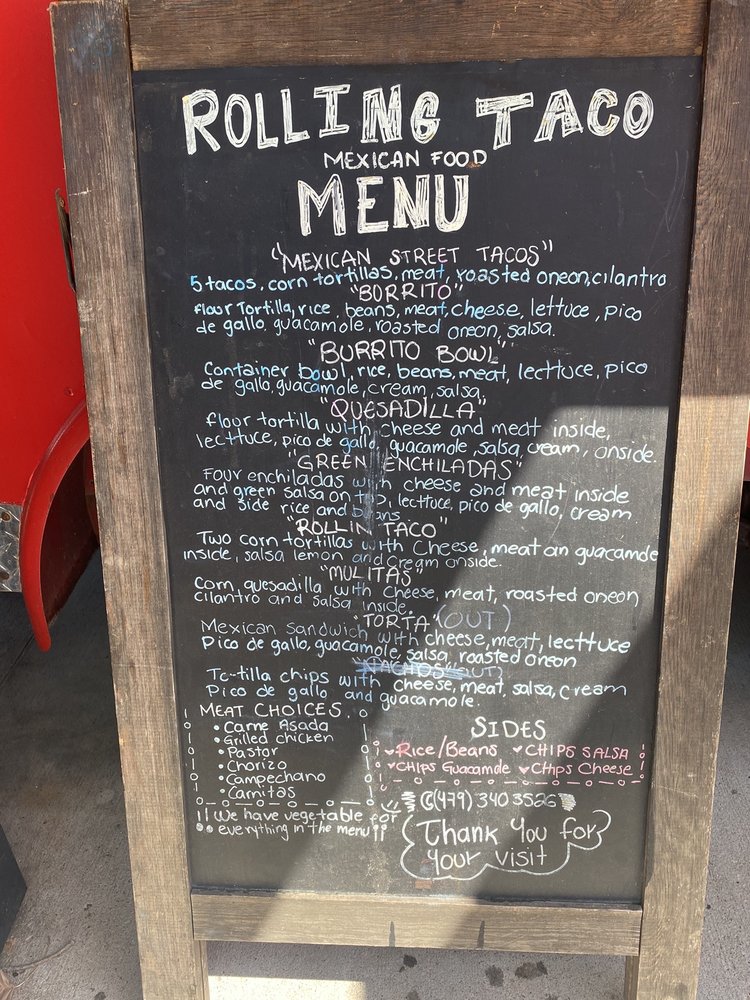 ROLLING TACO
MEXICAN FOOD
MENU
"MEXICAN STREET TACOS"
5 tacos, corn tortillas, meat, roasted oneon, cilantro
"BORRITO"
flour Tortilla, rice, beans, meat, cheese, lettuce, pico
de gallo, guacamole, roasted oneon, salsa.
"BURRITO BOWL"
Container bowl, rice, beans, meat, lecttuce, pico
de gallo, guacamole, cream, salsa,
"QUESADILLA"
flour tortilla with cheese and meat inside,
lecttuce, pico de gallo, guacamole, salsa, cream, onside.
"GREEN ENCHILADAS"
Four enchiladas with cheese and meat inside
and green salsa on top, lecttuce, pico de gallo, cream
and side rice and beans
"ROLLIN TACO"
Two corn tortillas with Cheese, meat an guacamole
inside, salsa lemon and cream onside.
"MULITAS"
Corn, quesadilla with cheese, meat, roasted oneon
cilantro and salsa inside.
"TORTA" (OUT)
Mexican sandwich with cheese, meat, lecttuce
Pico de gallo, guacamole, salsa, roasted oneon
"NACHOS" OUT
Tortilla chips with cheese, meat, salsa, cream
Pico de gallo and guacamole.
MEAT CHOICES
• Carne Asada
• Grilled chicken
• Pastor
• Chorizo
• Campechano
• Carnitas
!! We have vegetable for
everything in the menu !!
SIDES
♥Rice/Beans ♥CHIPS SALSA
♥CHIPS Guacamole ♥Chips Cheese
(479) 340 3526
Thank You for
your visit